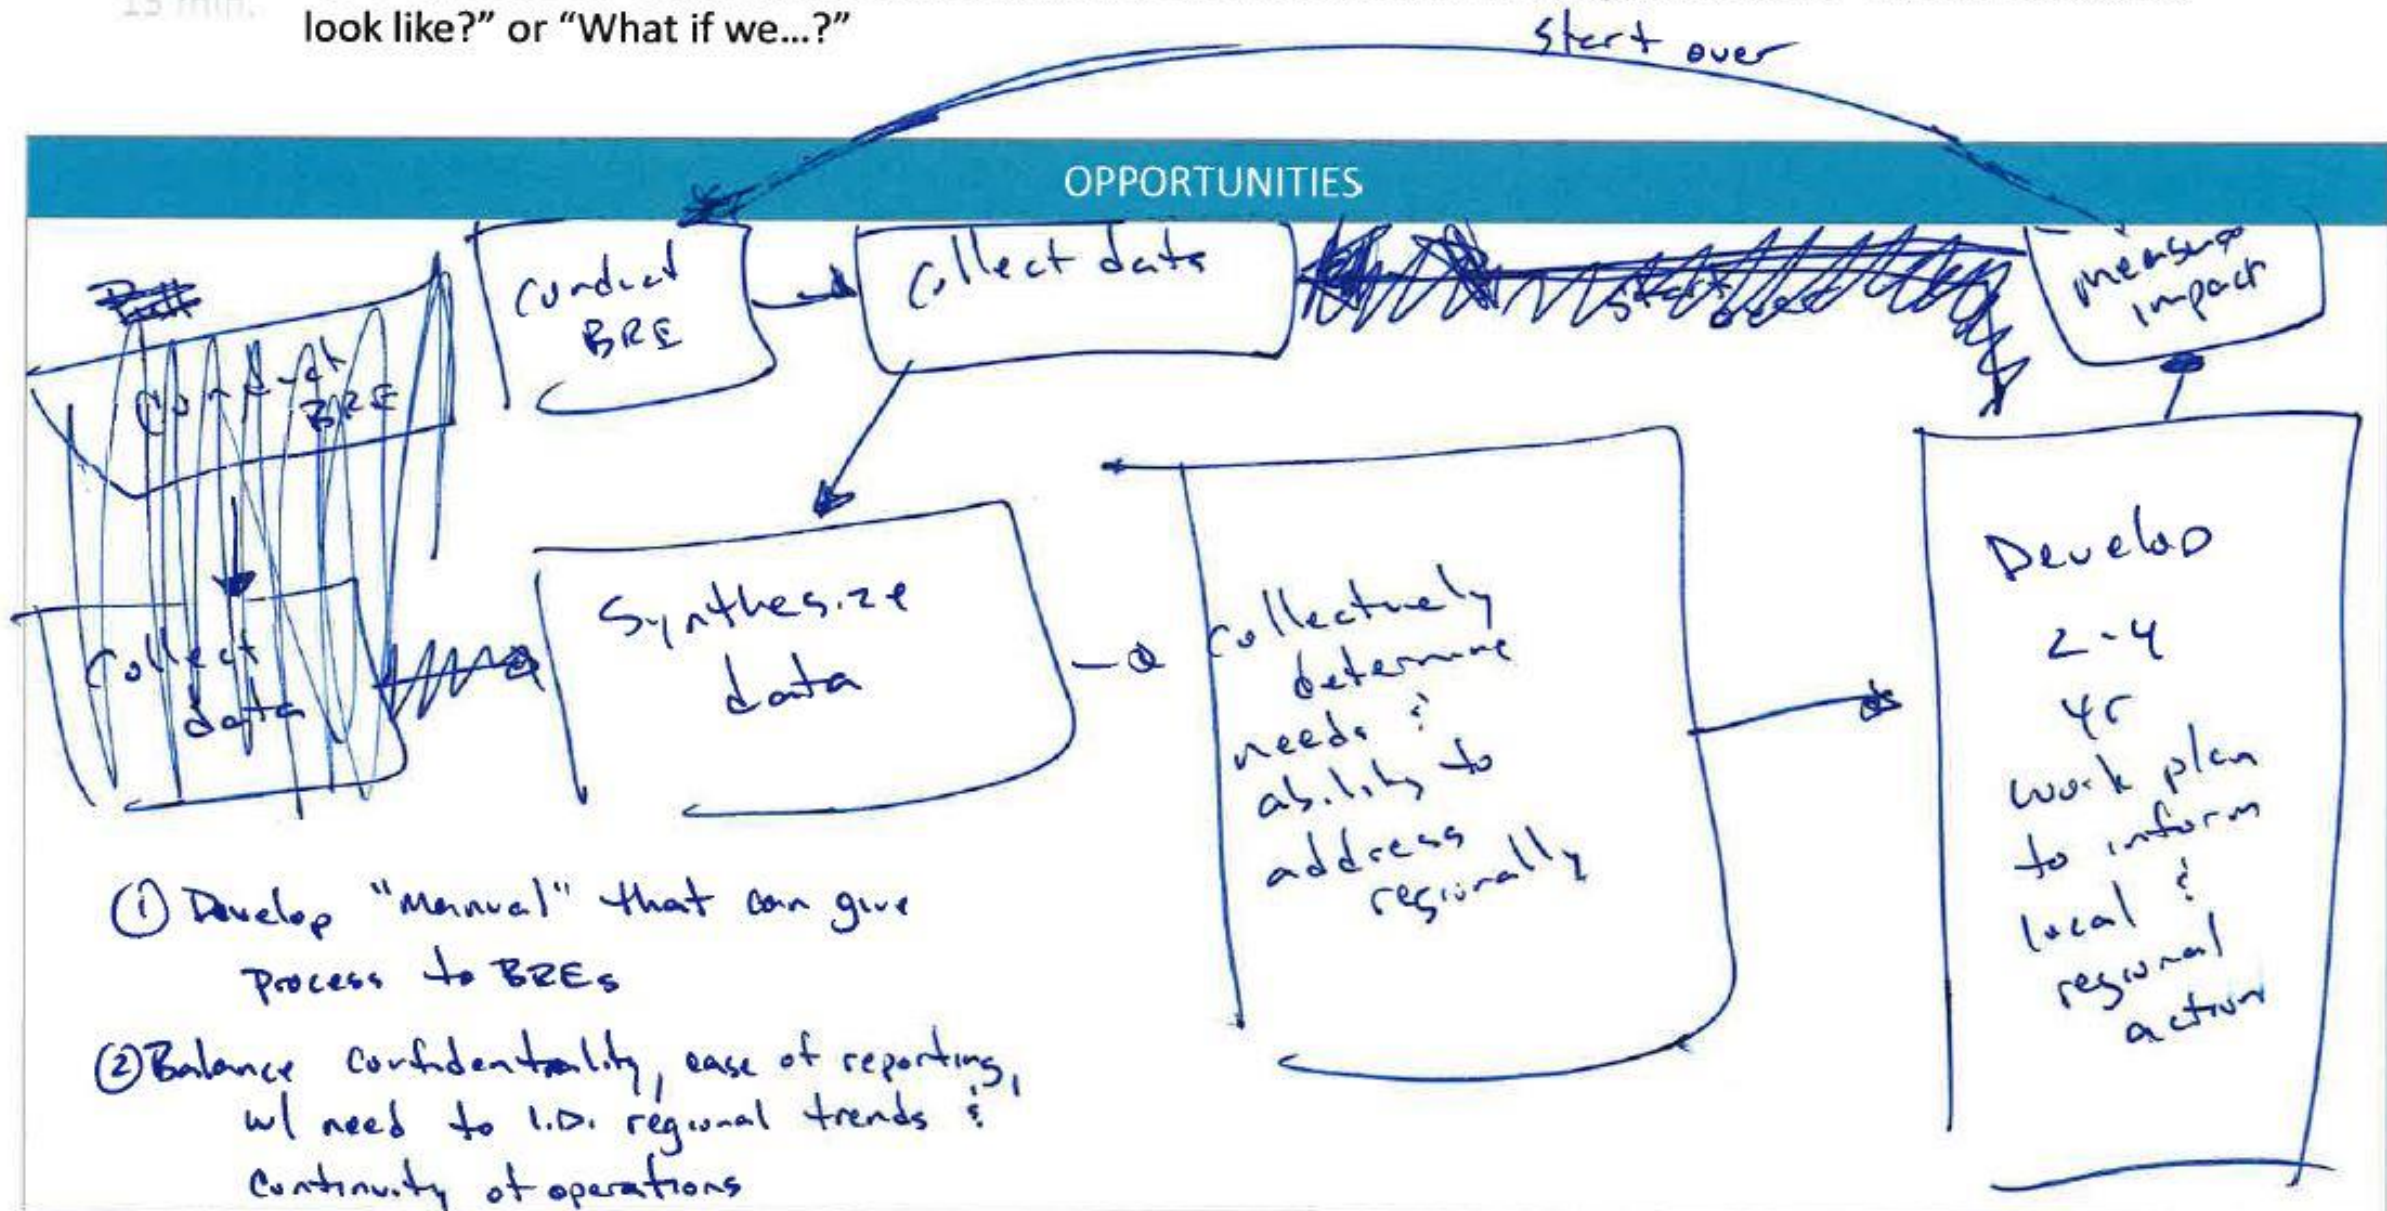 15 min.
look like?” or “What if we...?”
start over
OPPORTUNITIES
Conduct
BRE
Collect data
start over
measure
impact
Conduct
BRE
Collect
data
Synthesize
data
Collectively
determine
needs &
ability to
address
regionally
Develop
2-4
yr
work plan
to inform
local &
regional
action
① Develop "Manual" that can give
process to BREs
② Balance confidentiality, ease of reporting,
w/ need to I.D. regional trends &
continuity of operations